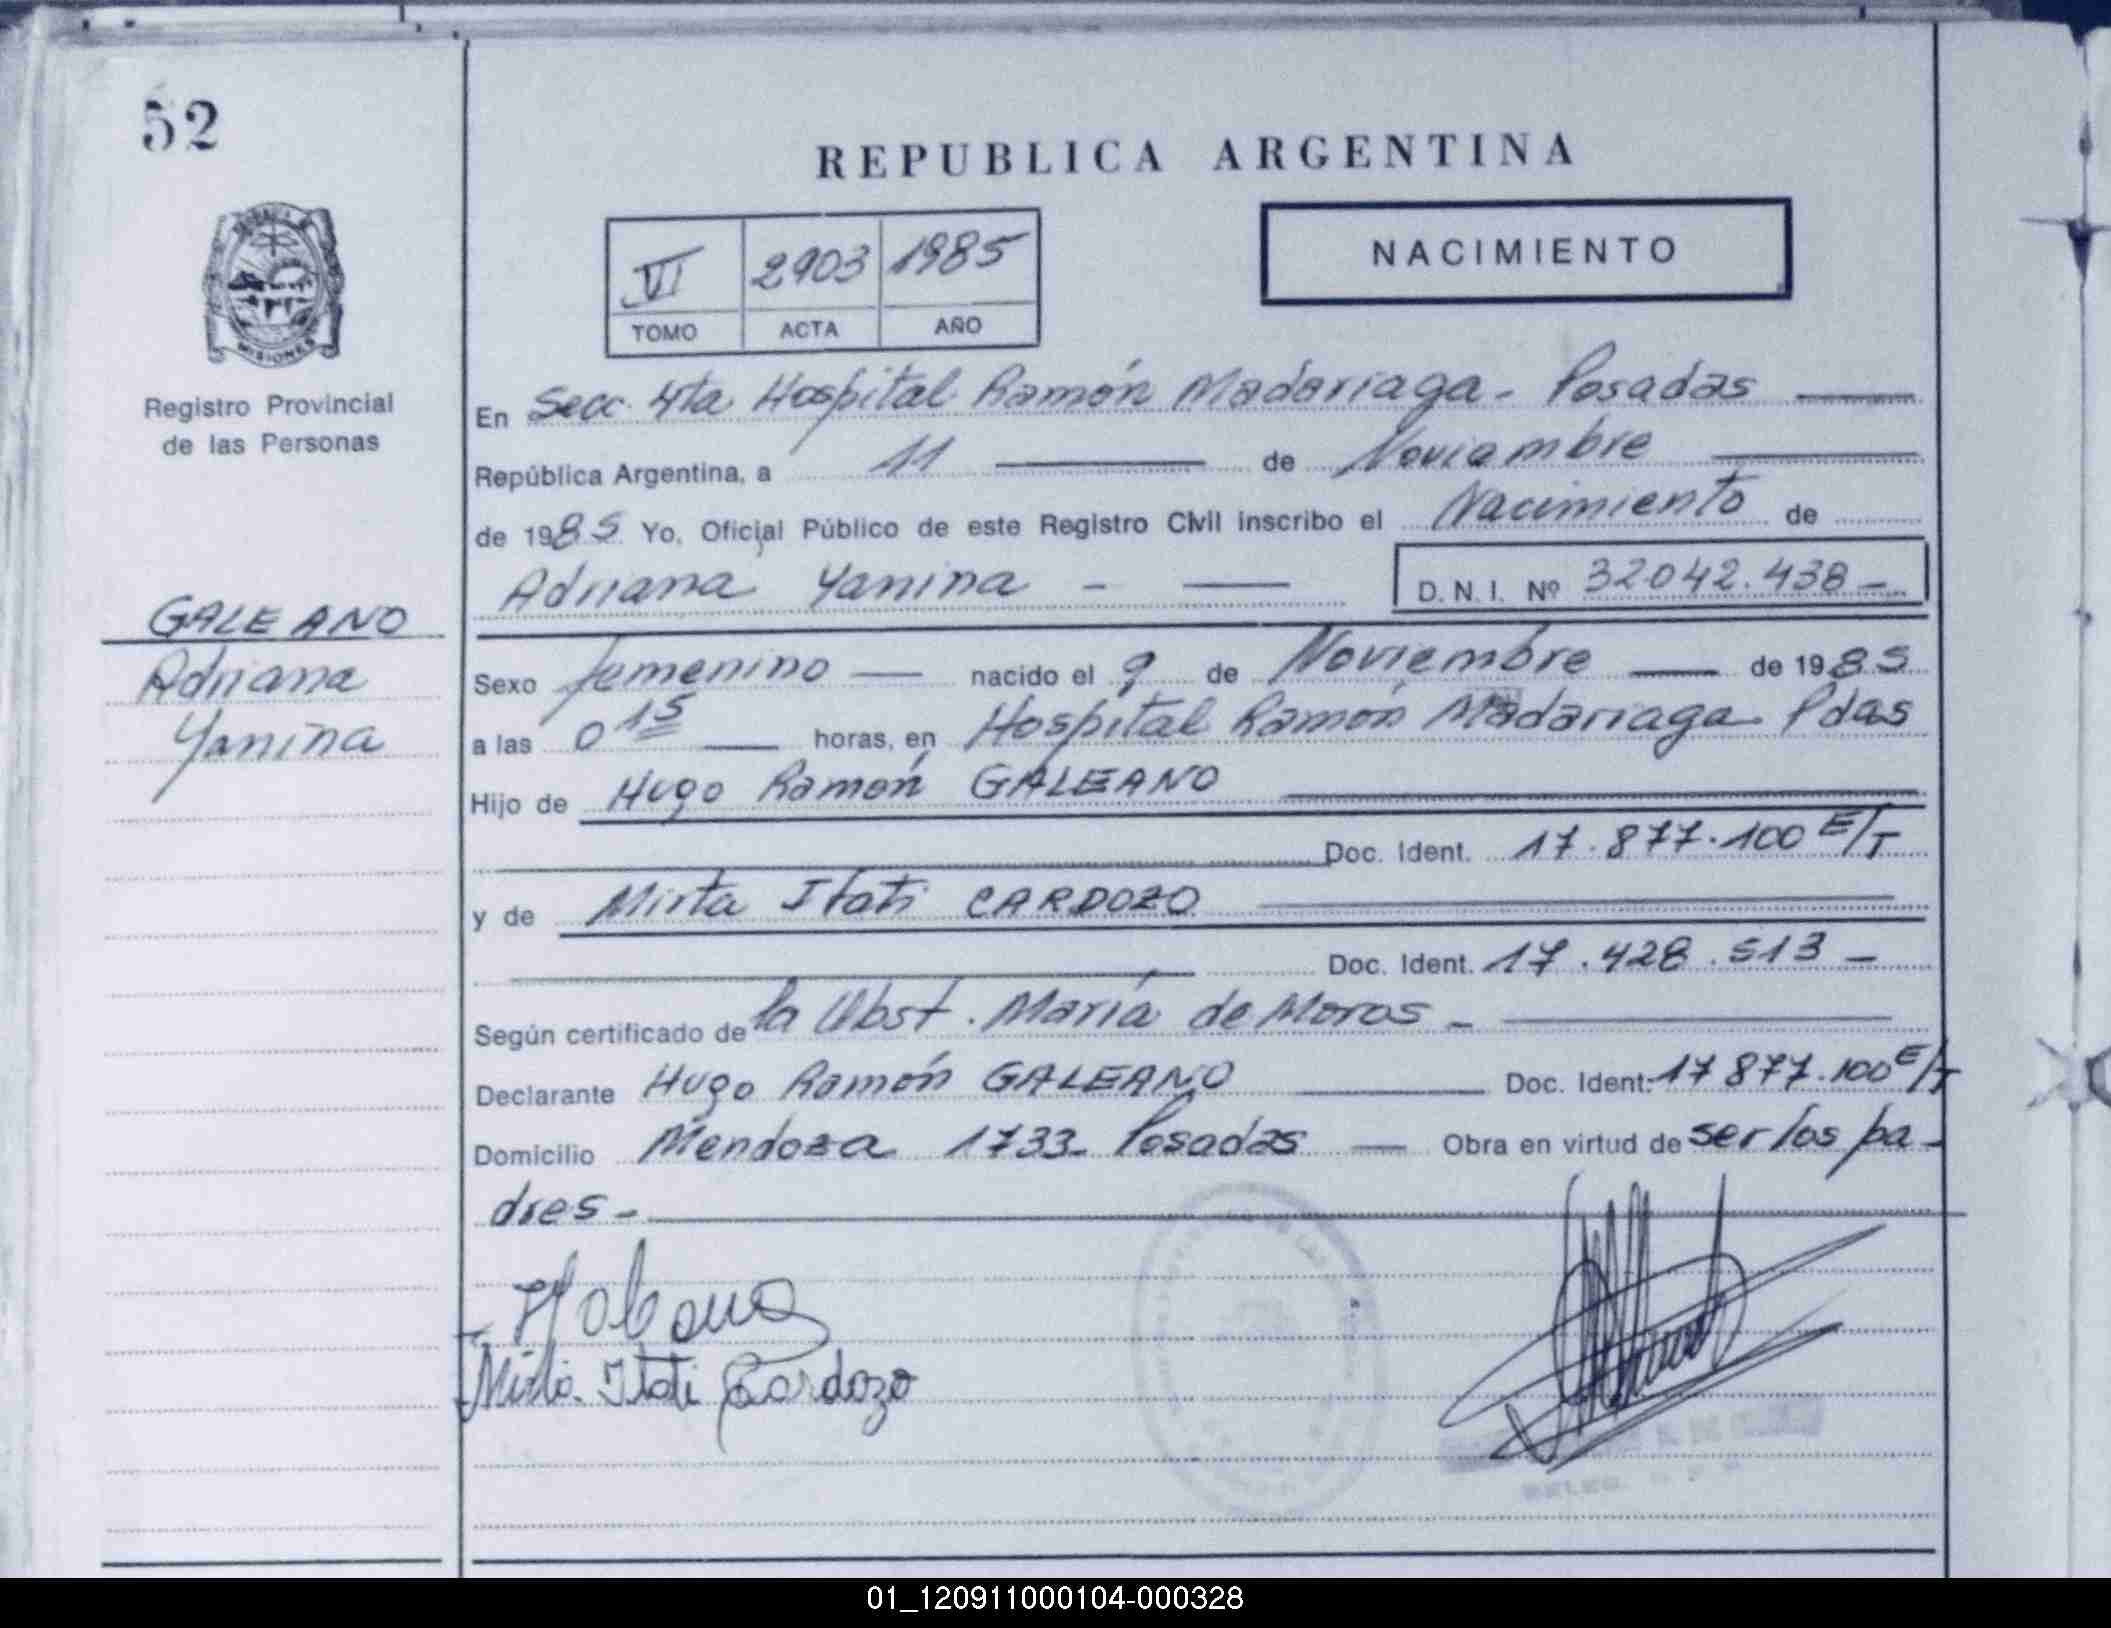 52
REPUBLICA ARGENTINA
VI 2903 1985
TOMO ACTA AÑO
NACIMIENTO
MISIONES
Registro Provincial
de las Personas
En Secc. 4ta Hospital Ramón Madariaga - Posadas
República Argentina, a 11 de Noviembre
de 1985 Yo, Oficial Público de este Registro Civil inscribo el Nacimiento de
Adriana Yanina - D. N. I. Nº 32042.438 -
GALEANO
Adriana
Yanina
Sexo femenino nacido el 9 de Noviembre de 1985
a las 0 15 horas, en Hospital Ramón Madariaga Pdas
Hijo de Hugo Ramón GALEANO
Doc. Ident. 17.877.100 E/T
y de Mirta Itati CARDOZO
Doc. Ident. 17.428.513 -
Según certificado de la Obst. María de Moros -
Declarante Hugo Ramón GALEANO Doc. Ident: 17 877.100 E/T
Domicilio Mendoza 1733 - Posadas - Obra en virtud de ser los pa-
dres -
Mirta Itati Cardozo
01_120911000104-000328